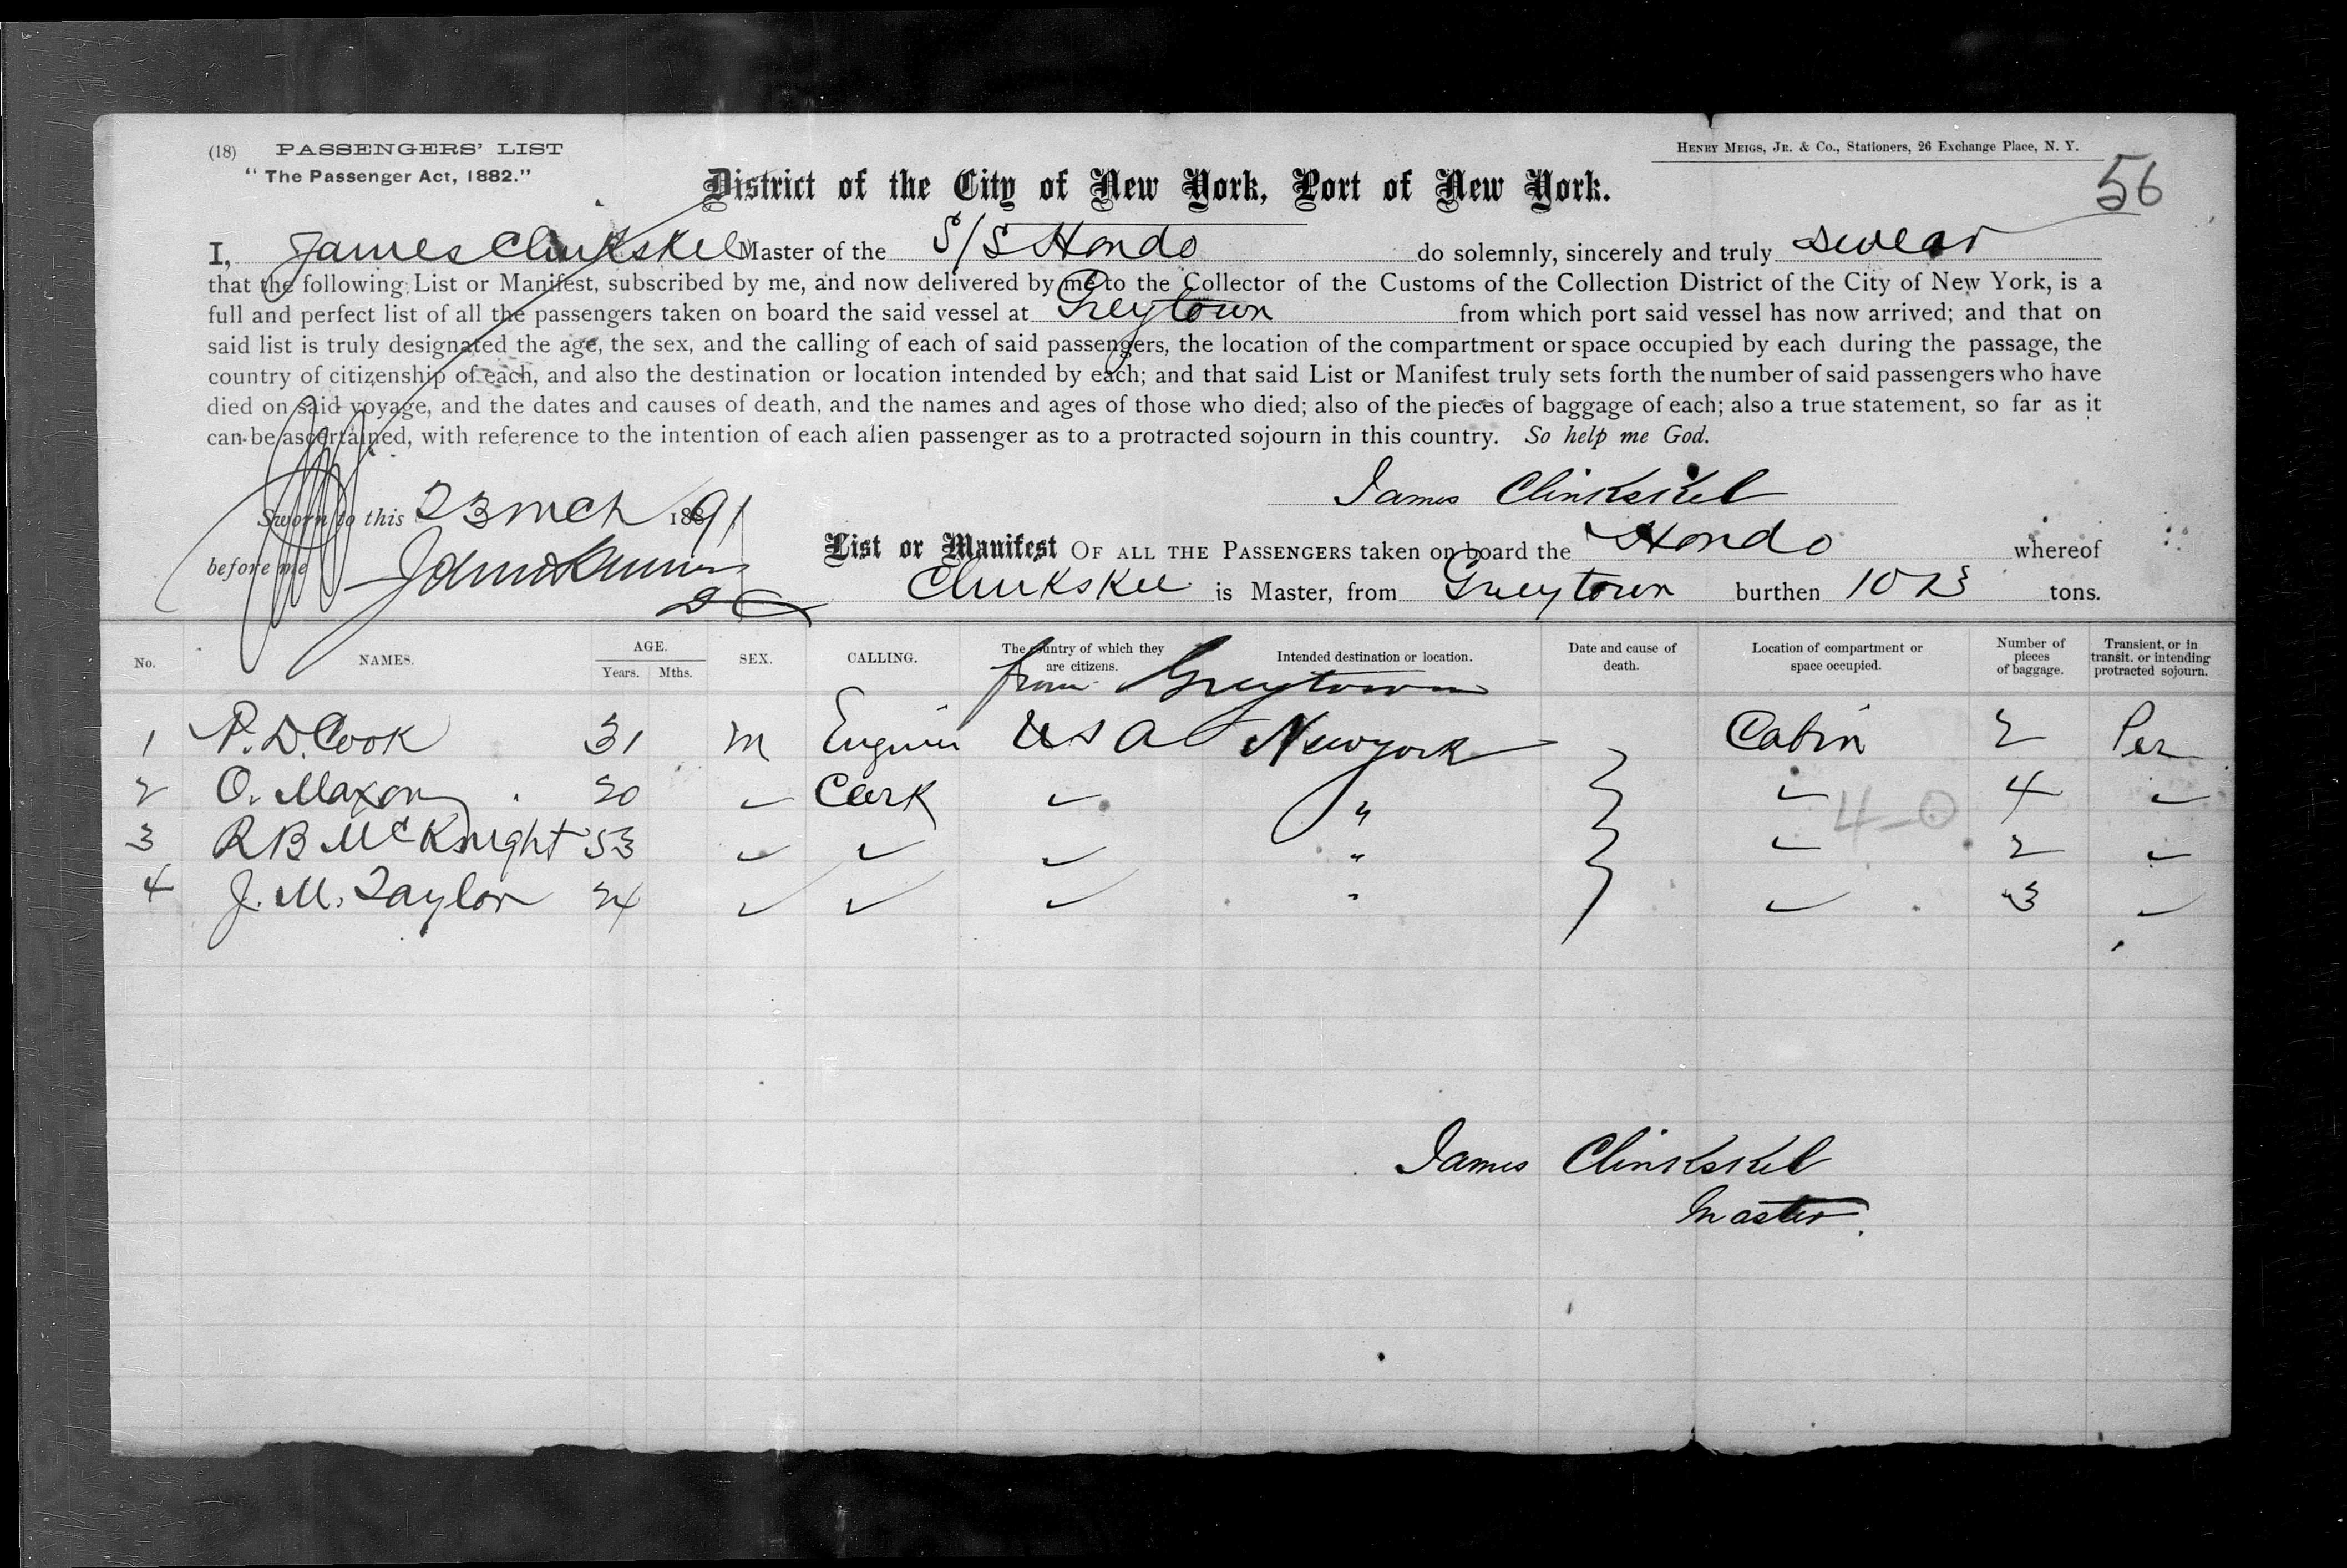 (18) PASSENGERS' LIST
HENRY MEIGS, JR. & CO., Stationers, 26 Exchange Place, N. Y.
" The Passenger Act, 1882."
56
District of the City of New York, Port of New York.
I, James Clinkskel Master of the S/S Hondo do solemnly, sincerely and truly swear
that the following List or Manifest, subscribed by me, and now delivered by me to the Collector of the Customs of the Collection District of the City of New York, is a
full and perfect list of all the passengers taken on board the said vessel at Greytown from which port said vessel has now arrived; and that on
said list is truly designated the age, the sex, and the calling of each of said passengers, the location of the compartment or space occupied by each during the passage, the
country of citizenship of each, and also the destination or location intended by each; and that said List or Manifest truly sets forth the number of said passengers who have
died on said voyage, and the dates and causes of death, and the names and ages of those who died; also of the pieces of baggage of each; also a true statement, so far as it
can be ascertained, with reference to the intention of each alien passenger as to a protracted sojourn in this country. So help me God.
James Clinkskel
Sworn to this 23 Mch 1891
before me
List or Manifest OF ALL THE PASSENGERS taken on board the Hondo whereof
Clinkskel is Master, from Greytown burthen 1023 tons.
No. NAMES. AGE. Years. Mths. SEX. CALLING. The country of which they are citizens. Intended destination or location. Date and cause of death. Location of compartment or space occupied. Number of pieces of baggage. Transient, or in transit, or intending protracted sojourn.
from Greytown
1 P. D. Cook 31 m Engineer U S A New york Cabin 2 Per
2 O. Maxon 20 " Clerk " " " 4 "
4-0
3 R B McKnight 53 " " " " " 2 "
4 J. M. Taylor 24 " " " " " 3 "
James Clinkskel
Master.